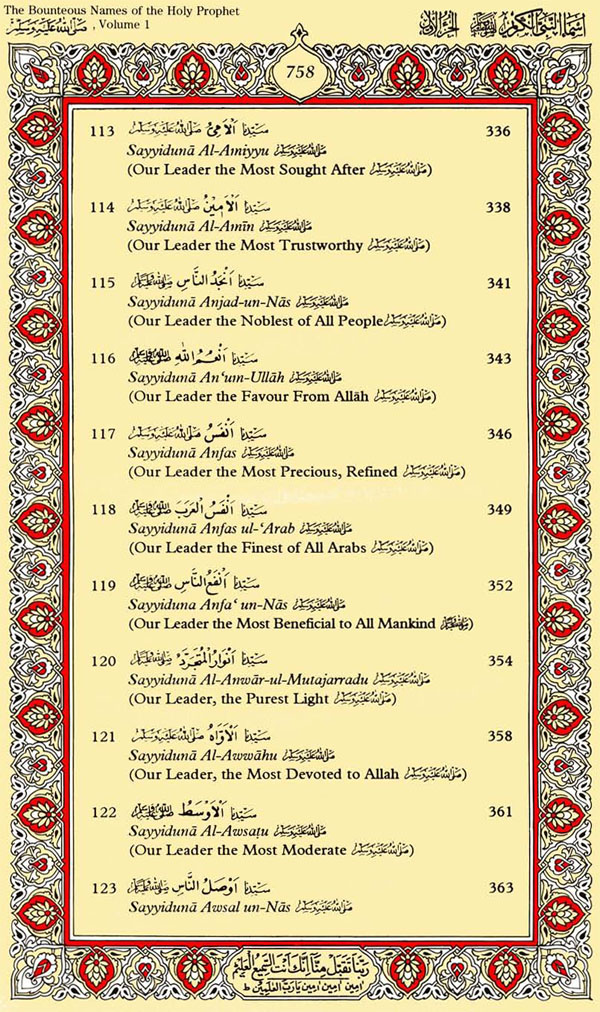 The Bounteous Names of the Holy Prophet
ﷺ, Volume 1
اسما النبی الکریم ﷺ الجزء الاول
758
113 سَيِّدِنَا اَلْاَمِیُّ ﷺ 336
Sayyidunā Al-Amiyyu ﷺ
(Our Leader the Most Sought After ﷺ)
114 سَيِّدِنَا اَلْاَمِيْنُ ﷺ 338
Sayyidunā Al-Amīn ﷺ
(Our Leader the Most Trustworthy ﷺ)
115 سَيِّدِنَا اَنْجَدُ النَّاسِ ﷺ 341
Sayyidunā Anjad-un-Nās ﷺ
(Our Leader the Noblest of All People ﷺ)
116 سَيِّدِنَا اَنْعُمُ اللّٰهِ ﷺ 343
Sayyidunā An‘um-Ullāh ﷺ
(Our Leader the Favour From Allāh ﷺ)
117 سَيِّدِنَا اَنْفَسُ ﷺ 346
Sayyidunā Anfas ﷺ
(Our Leader the Most Precious, Refined ﷺ)
118 سَيِّدِنَا اَنْفَسُ الْعَرَبِ ﷺ 349
Sayyidunā Anfas ul-‘Arab ﷺ
(Our Leader the Finest of All Arabs ﷺ)
119 سَيِّدِنَا اَنْفَعُ النَّاسِ ﷺ 352
Sayyiduna Anfa‘ un-Nās ﷺ
(Our Leader the Most Beneficial to All Mankind ﷺ)
120 سَيِّدِنَا اَنْوَارُ الْمُتَجَرَّدِ ﷺ 354
Sayyidunā Al-Anwār-ul-Mutajarradu ﷺ
(Our Leader, the Purest Light ﷺ)
121 سَيِّدِنَا اَلْاَوَّاهُ ﷺ 358
Sayyidunā Al-Awwāhu ﷺ
(Our Leader, the Most Devoted to Allah ﷺ)
122 سَيِّدِنَا اَلْاَوْسَطُ ﷺ 361
Sayyidunā Al-Awsaṭu ﷺ
(Our Leader the Most Moderate ﷺ)
123 سَيِّدِنَا اَوْصَلُ النَّاسِ ﷺ 363
Sayyidunā Awsal un-Nās ﷺ
رَبَّنَا تَقَبَّلْ مِنَّا اِنَّكَ اَنْتَ السَّمِيْعُ الْعَلِيْمُ
اٰمِيْن اٰمِيْن اٰمِيْن يَا رَبَّ الْعٰلَمِيْنَ ط